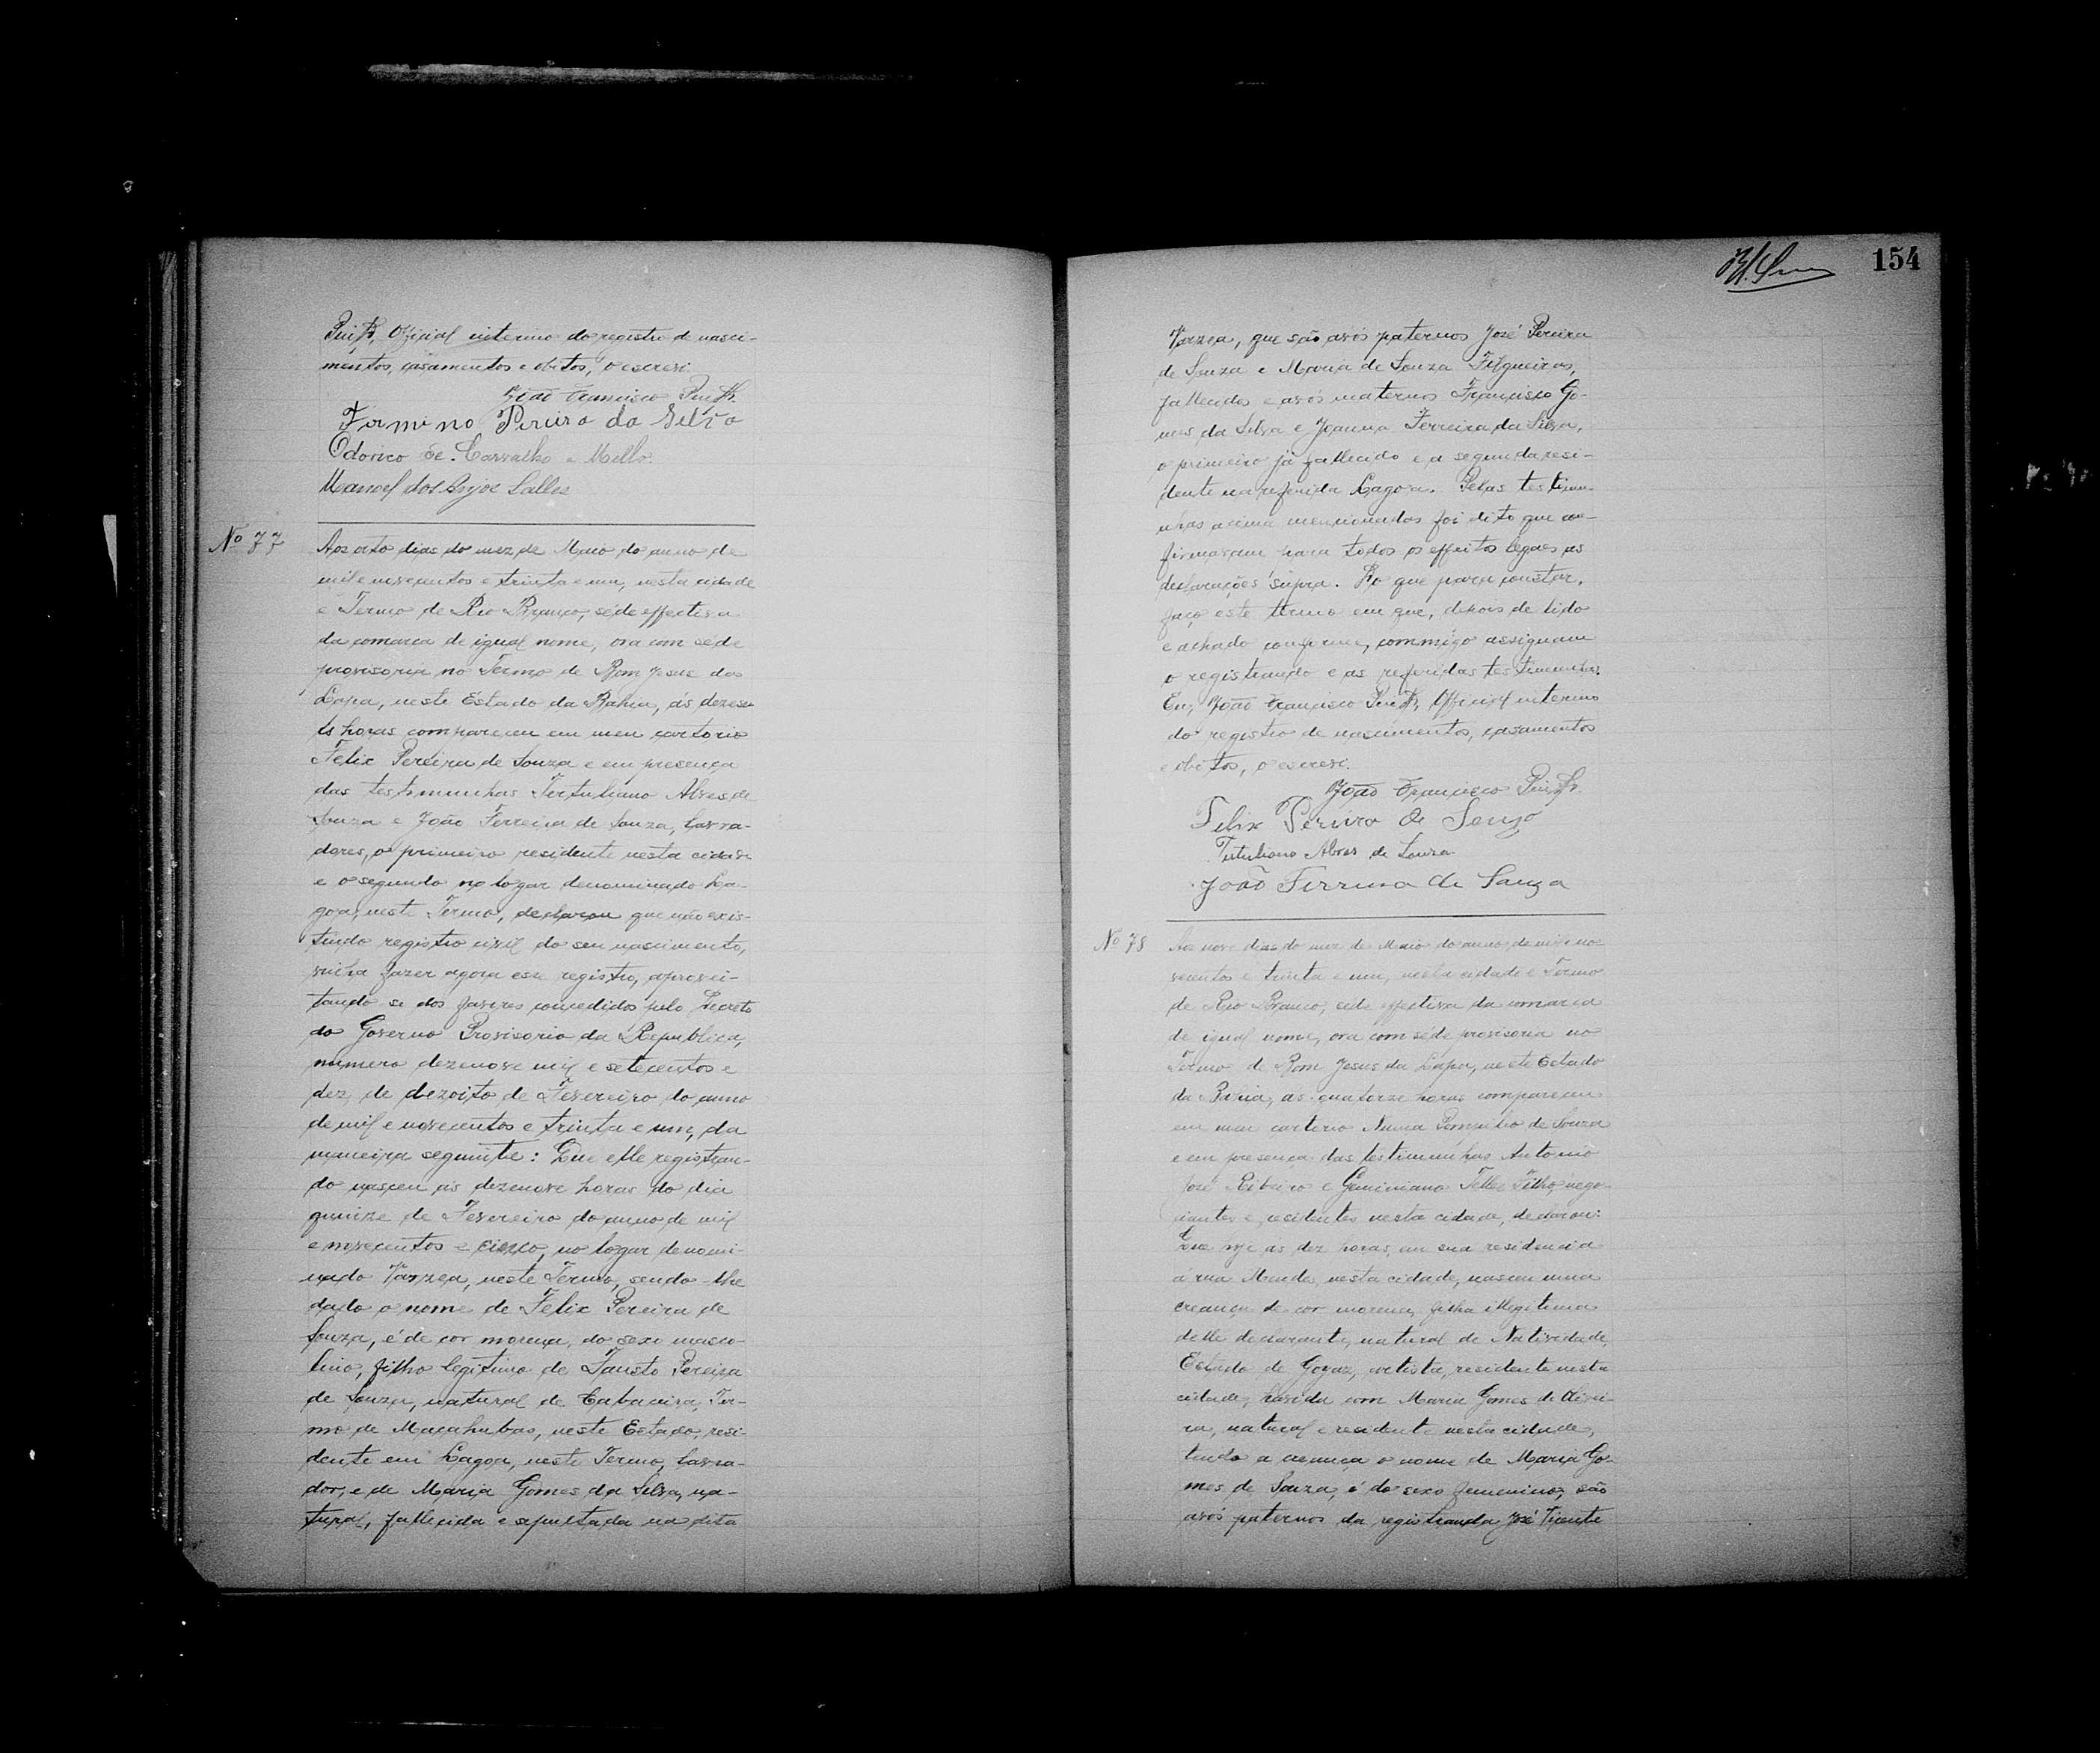 Official interino do registro de nasci-
mentos, casamentos e obitos, o escrevi.
João Francisco
Firmino Pereira da Silva
Odorico de Carvalho e Mello.
Manoel dos Anjos Salles
Nº 77
Aos oito dias do mez de Maio do anno de
mil e novecentos e trinta e um, nesta cidade
e Termo de Rio Branco, séde effectiva
da comarca de igual nome, ora com séde
provisoria no Termo de Bom Jesus da
Lapa, neste Estado da Bahia, ás dezese-
is horas compareceu em meu cartorio
Felix Pereira de Souza e em presença
das testimunhas Tertuliano Alves de
Souza e João Ferreira de Souza, lavra-
dores, o primeiro residente nesta cidade
e o segundo no logar denominado La-
goa, neste Termo, declarou que não exis-
tindo registro civil do seu nascimento,
vinha fazer agora esse registro, aprovei-
tando se dos favores concedidos pelo Decreto
do Governo Provisorio da Republica,
numero dezenove mil e setecentos e
dez, de dezoito de Fevereiro do anno
de mil e novecentos e trinta e um, da
maneira seguinte: Que elle registran-
do nasceu ás dezenove horas do dia
quinze de Fevereiro do anno de mil
e novecentos e cinco, no logar denomi-
nado Varzea, neste Termo, sendo-lhe
dado o nome de Felix Pereira de
Souza, é de cor morena, do sexo mascu-
lino, filho legitimo de Fausto Pereira
de Souza, natural de Ter-
mo de Macahubas, neste Estado, resi-
dente em Lagoa, neste Termo, lavra-
dor, e de Maria Gomes da Silva, na-
tural, fallecida e sepultada na dita
154
Varzea, que são avós paternos José Pereira
de Souza e Maria de Souza Filgueiras,
fallecidos e avós maternos Francisco Go-
mes da Silva e Joanna Ferreira da Silva,
o primeiro já fallecido e a segunda resi-
dente na referida Lagoa. Pelas testimu-
nhas acima mencionadas foi dito que con-
firmavam para todos os effeitos legaes as
declarações supra. Do que para constar,
faço este termo em que, depois de lido
e achado conforme, commigo assignam
o registrando e as referidas testimunhas.
Eu, João Francisco Official interino
do registro de nascimentos, casamentos
e obitos, o escrevi.
João Francisco
Felix Pereira de Souza
Tertuliano Alves de Souza
João Ferreira de Souza
Nº 78
Aos nove dias do mez de Maio do anno de mil e no-
vecentos e trinta e um, nesta cidade e Termo
de Rio Branco, séde effectiva da comarca
de igual nome, ora com séde provisoria no
Termo de Bom Jesus da Lapa, neste Estado
da Bahia, ás quatorze horas compareceu
em meu cartorio Numa Pompilio de Souza
e em presença das testimunhas Antonio
José Ribeiro e Geminiano Telles Filho, nego-
ciantes e residentes nesta cidade, declarou:
Que hoje ás dez horas, em sua residencia
á rua nesta cidade, nasceu uma
creança de cor morena, filha illegitima
delle declarante, natural de Natividade,
Estado de Goyaz, artista, residente nesta
cidade, havida com Maria Gomes de Olivei-
ra, natural e residente nesta cidade,
tendo a creança o nome de Maria Go-
mes de Souza, é do sexo femenino, são
avós paternos da registranda José Vicente